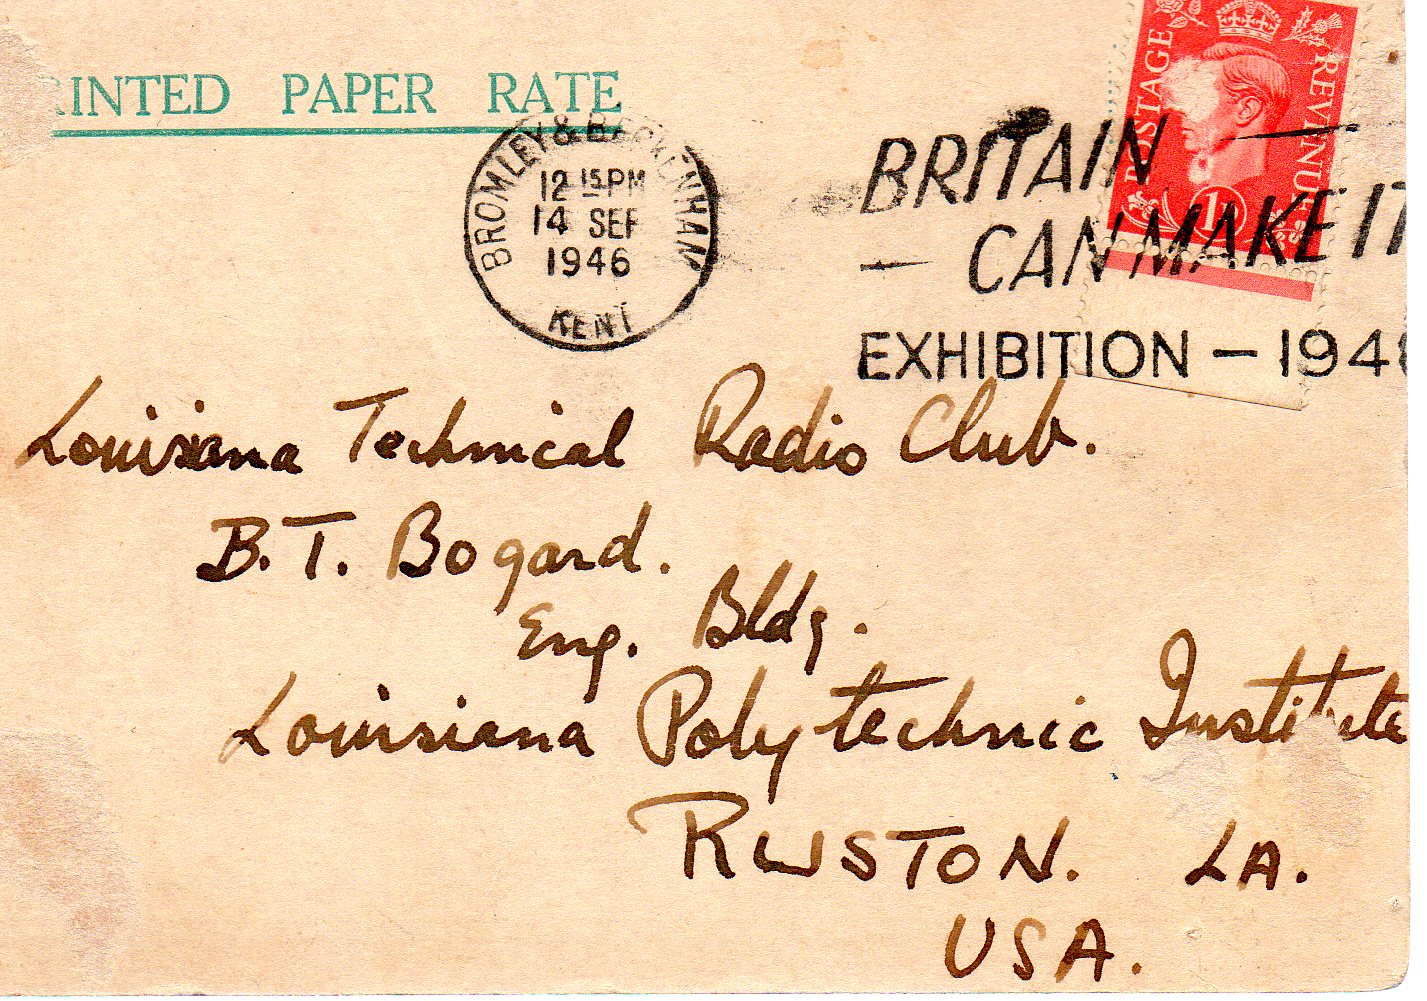 RINTED PAPER RATE
BROMLEY & BECKENHAM
12 15 PM
14 SEP
1946
KENT
POSTAGE REVENUE
1D
BRITAIN
CAN MAKE IT
EXHIBITION - 194
Louisiana Technical Radio Club.
B.T. Bogard.
Eng. Bldg.
Louisiana Polytechnic Institute
RUSTON. LA.
USA.